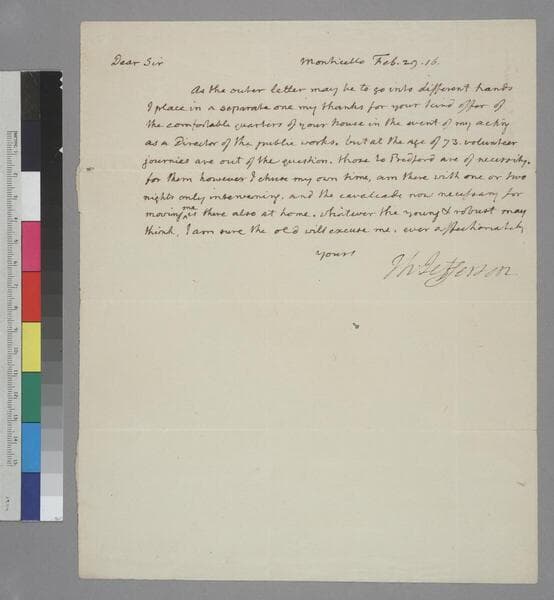 Dear Sir Monticello Feb. 29. 16.
As the outer letter may be to go into different hands
I place in a separate one my thanks for your kind offer of
the comfortable quarters of your house in the event of my acting
as a Director of the public works. but at the age of 73. volunteer
journies are out of the question. those to Bedford are of necessity.
for them however I chuse my own time, am there with one or two
nights only intervening. and the cavalcade now necessary for
moving me is there also at home. whatever the young & robust may
think, I am sure the old will excuse me. ever affectionately
yours
Th: Jefferson